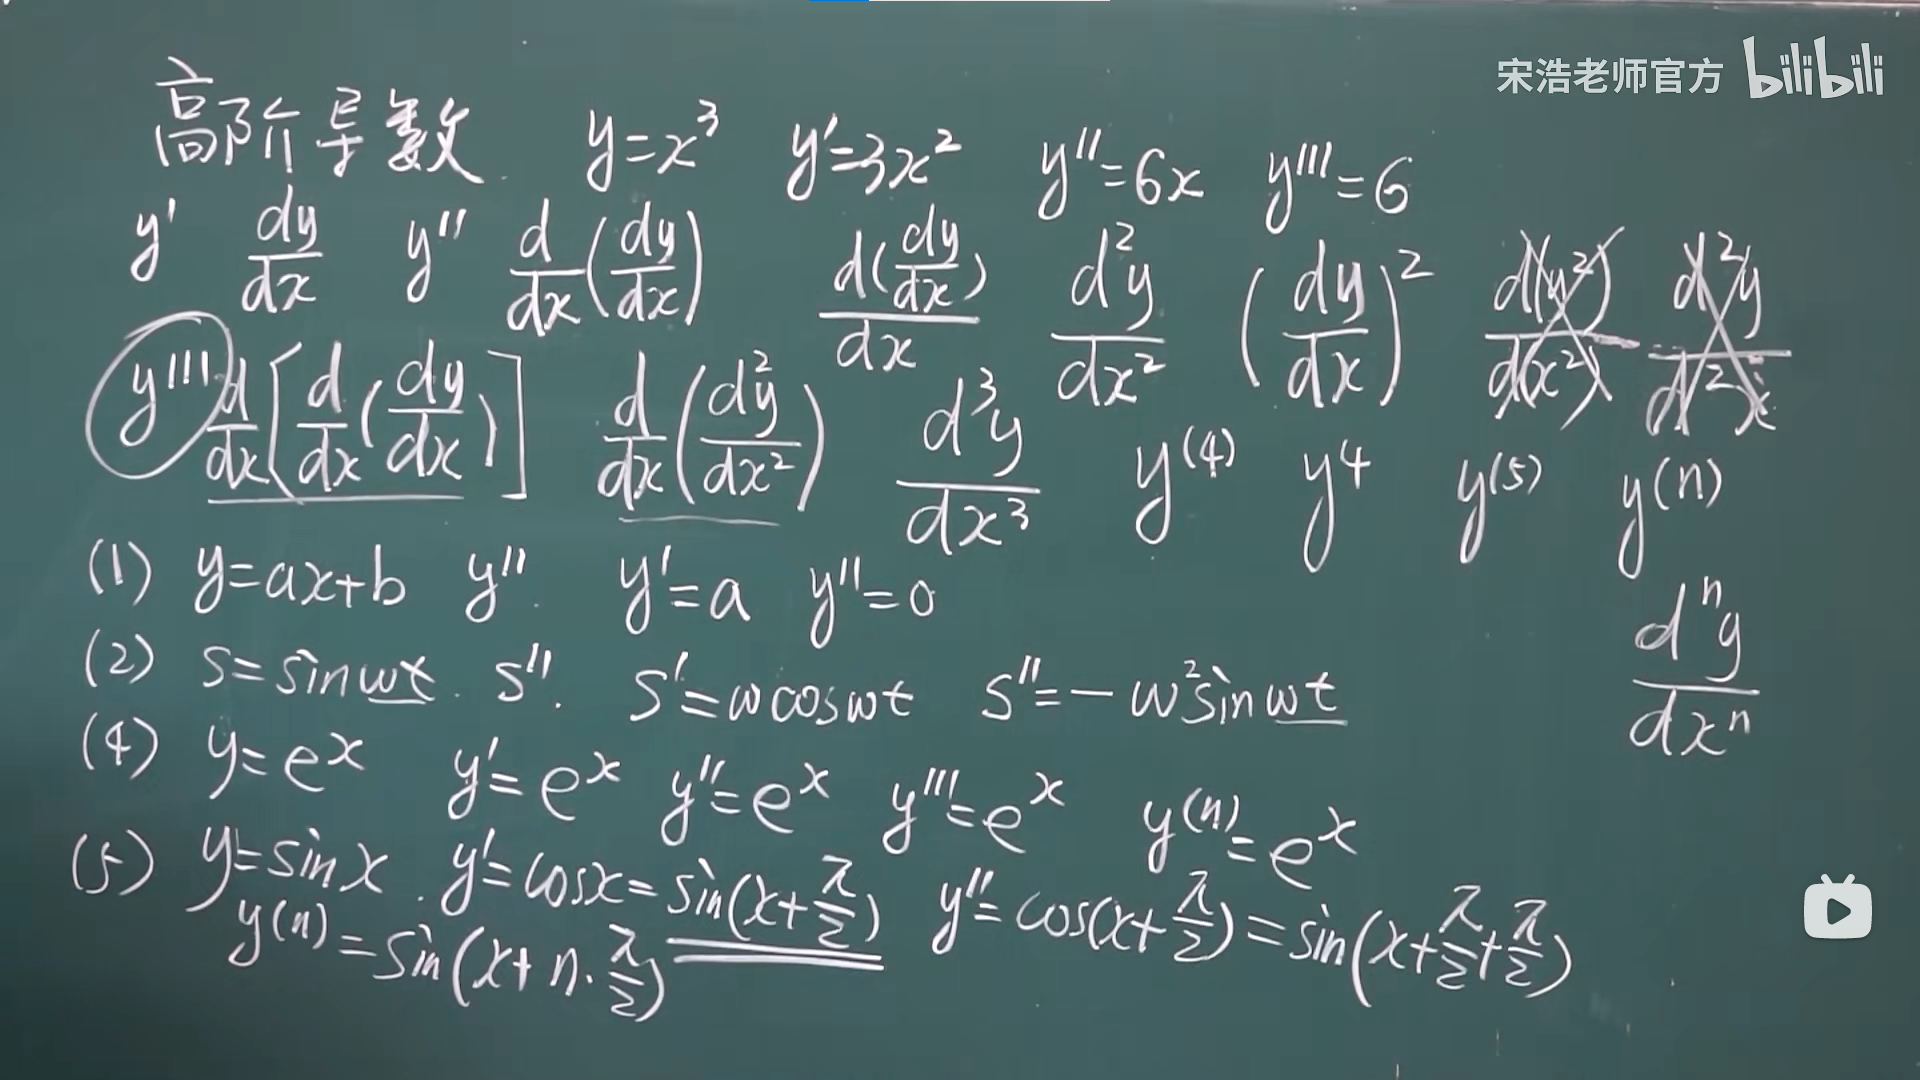 宋浩老师官方 bilibili
高阶导数 y=x³ y′=3x² y″=6x y‴=6
y′ dy/dx y″ d/dx(dy/dx) d(dy/dx)/dx d²y/dx² (dy/dx)² d(y²)/d(x²) d²y/d²x
y‴ d/dx[d/dx(dy/dx)] d/dx(d²y/dx²) d³y/dx³ y⁽⁴⁾ y⁴ y⁽⁵⁾ y⁽ⁿ⁾
(1) y=ax+b y″. y′=a y″=0
dⁿy/dxⁿ
(2) s=sinwt. s″. s′=wcoswt s″=-w²sinwt
(4) y=eˣ y′=eˣ y″=eˣ y‴=eˣ y⁽ⁿ⁾=eˣ
(5) y=sinx. y′=cosx=sin(x+π/2) y″=cos(x+π/2)=sin(x+π/2+π/2)
y(n)=sin(x+n·π/2)